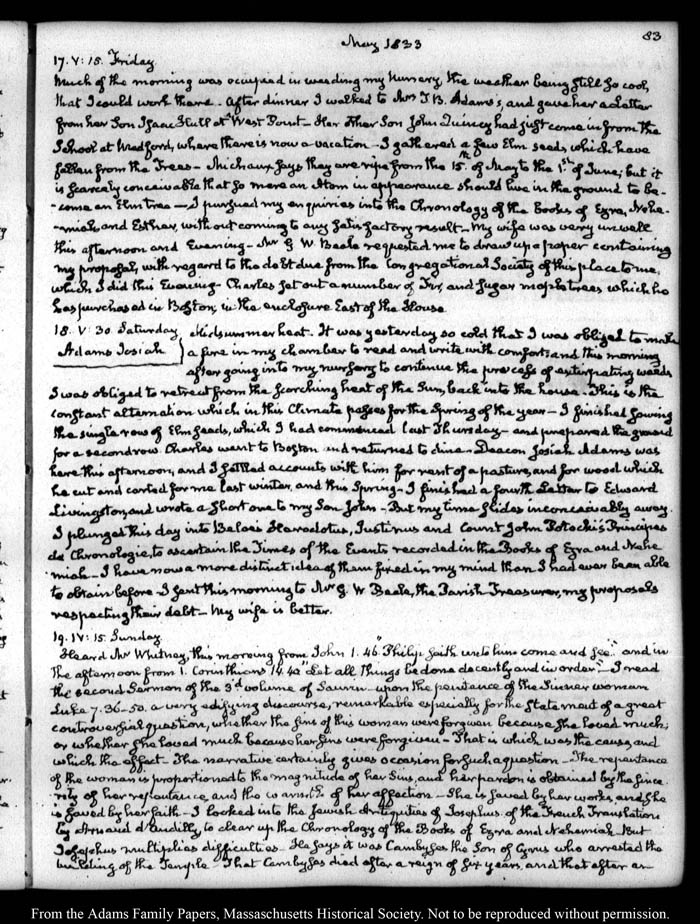 83
May 1833
17. V: 15. Friday
Much of the morning was occupied in weeding my Nursery, the weather being still so cool,
that I could work there. After dinner I walked to Mrs T. B. Adams's, and gave her a Letter
from her Son Isaac Hull at West Point. Her other Son John Quincy had just come in from the
School at Medford, where there is now a vacation. I gathered a few Elm seeds, which have
fallen from the Trees. Michaux says they are ripe from the 15th of May to the 1st of June; but it
is scarcely conceivable that so mere an Atom in appearance should live in the ground to be-
-come an Elm tree — I pursued my enquiries into the Chronology of the Books of Ezra, Nehe-
-miah and Esther, without coming to any satisfactory result. My wife was very unwell
this afternoon and Evening. Mr G. W. Beale requested me to draw up a paper containing
my proposal, with regard to the debt due from the Congregational Society of this place to me,
which I did this Evening. Charles set out a number of Fir, and Sugar maple trees which he
has purchased in Boston, in the enclosure East of the House
18. V: 30. Saturday Midsummer heat. It was yesterday so cold that I was obliged to make
Adams Josiah a fire in my chamber to read and write with comfort; and this morning
after going into my nursery to continue the process of extirpating weeds
I was obliged to retreat from the scorching heat of the Sun, back into the house. This is the
constant alternation which in this Climate passes for the Spring of the year — I finished sowing
the single row of Elm seeds, which I had commenced last Thursday — and prepared the ground
for a second row. Charles went to Boston and returned to dine. Deacon Josiah Adams was
here this afternoon, and I settled accounts with him for rent of a pasture, and for wood which
he cut and carted for me last winter, and this Spring. I finished a fourth Letter to Edward
Livingston, and wrote a short one to my Son John. But my time glides inconceivably away.
I plunged this day into Beloe's Herodotus, Justinus and Count John Potocki's Principes
de Chronologie, to ascertain the Times of the Events recorded in the Books of Ezra and Nehe
miah. I have now a more distinct idea of them fixed in my mind than I had ever been able
to obtain before. I sent this morning to Mr G. W. Beale, the Parish Treasurer, my proposals
respecting their debt — My wife is better.
19. IV: 15. Sunday.
Heard Mr Whitney, this morning from John 1. 46. "Philip saith unto him come and see." and in
the afternoon from 1. Corinthians 14. 40 "Let all things be done decently and in order." I read
the second Sermon of the 3d volume of Saurin upon the penitence of the Sinner woman
Luke 7. 36-50. a very edifying discourse, remarkable especially for the statement of a great
controversial question, whether the sins of this woman were forgiven because she loved much;
or whether she loved much because her sins were forgiven — That is which was the cause, and
which the effect. The narrative certainly gives occasion for such a question — The repentance
of the woman is proportioned to the magnitude of her Sins, and her pardon is obtained by the since
rity of her repentance, and the warmth of her affection. She is saved by her works, and she
is saved by her faith. I looked into the Jewish Antiquities of Josephus of the French Translation
by Arnauld d'Andilly to clear up the Chronology of the Books of Ezra and Nehemiah. But
Josephus multiplies difficulties. He says it was Cambyses the Son of Cyrus who arrested the
building of the Temple. That Cambyses died after a reign of six years, and that after an
From the Adams Family Papers, Massachusetts Historical Society. Not to be reproduced without permission.